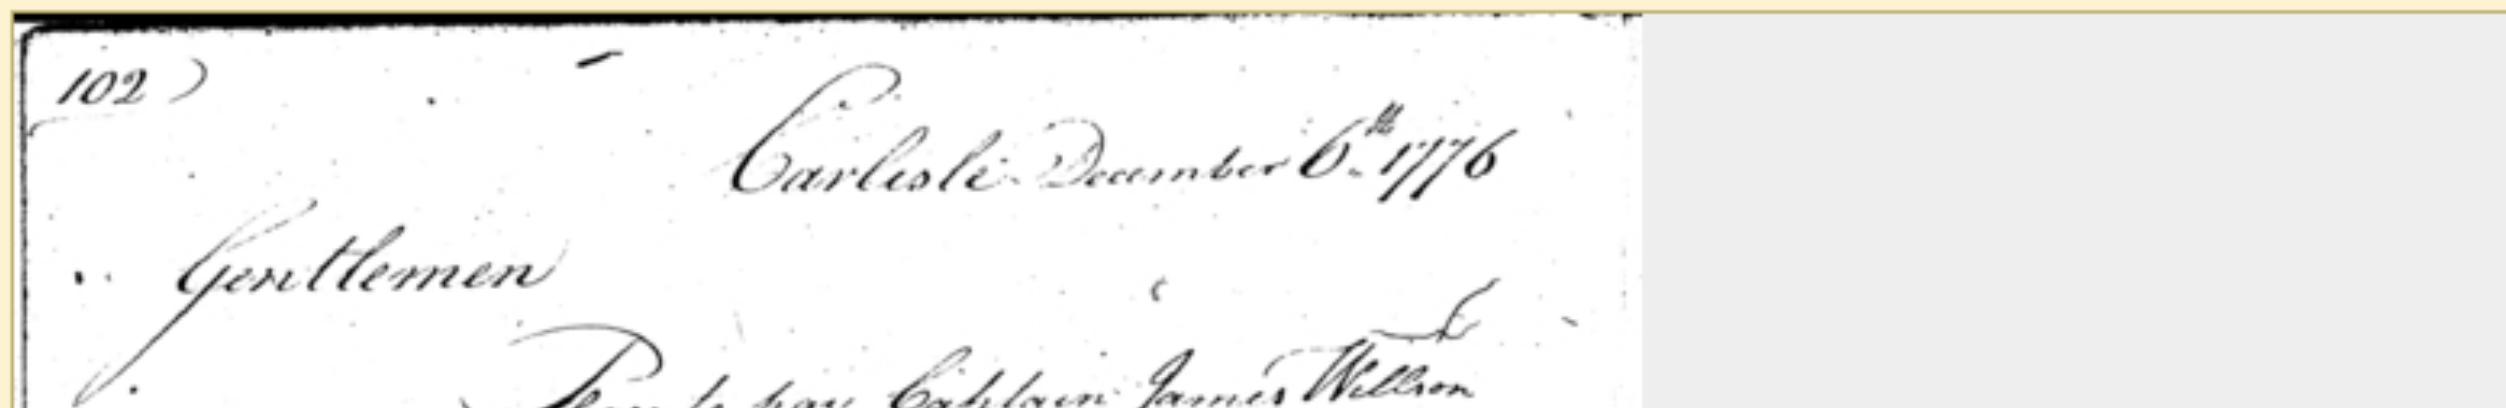 102)
Carlisle December 6th. 1776
Gentlemen
Please to pay Captain James Willson